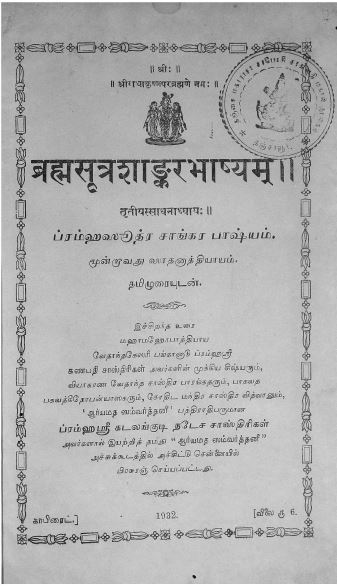 ॥ श्रीः ॥
॥ श्रीराधाकृष्णपरब्रह्मणे नमः ॥
ब्रह्मसूत्रशाङ्करभाष्यम् ॥
तृतीयस्साधनाध्यायः ॥
ப்ரம்ஹஸூத்ர சாங்கர பாஷ்யம்.
மூன்றாவது ஸாதனாத்தியாயம்.
தமிழுரையுடன்.
இச்சிறந்த உரை
மஹாமஹோபாத்தியாய
வேதாந்தகேஸரி பங்காநாடு ப்ரம்ஹஸ்ரீ
கணபதி சாஸ்திரிகள் அவர்களின் முக்கிய சிஷ்யரும்,
வியாகரண வேதாந்த சாஸ்திர பாரங்கதரும், பாகவத
பகவத்கீதோபன்யாஸகரும், ஜோதிட மந்திர சாஸ்திர வித்வானும்,
'ஆர்யமத ஸம்வர்த்தனீ' பத்திராதிபருமான
ப்ரம்ஹஸ்ரீ கடலங்குடி நடேச சாஸ்திரிகள்
அவர்களால் இயற்றித் தமது "ஆர்யமத ஸம்வர்த்தனீ"
அச்சுக்கூடத்தில் அச்சிட்டு சென்னையில்
பிரசுரஞ் செய்யப்பட்டது.
காபிரைட்.] 1932. [விலை ரூ 6.